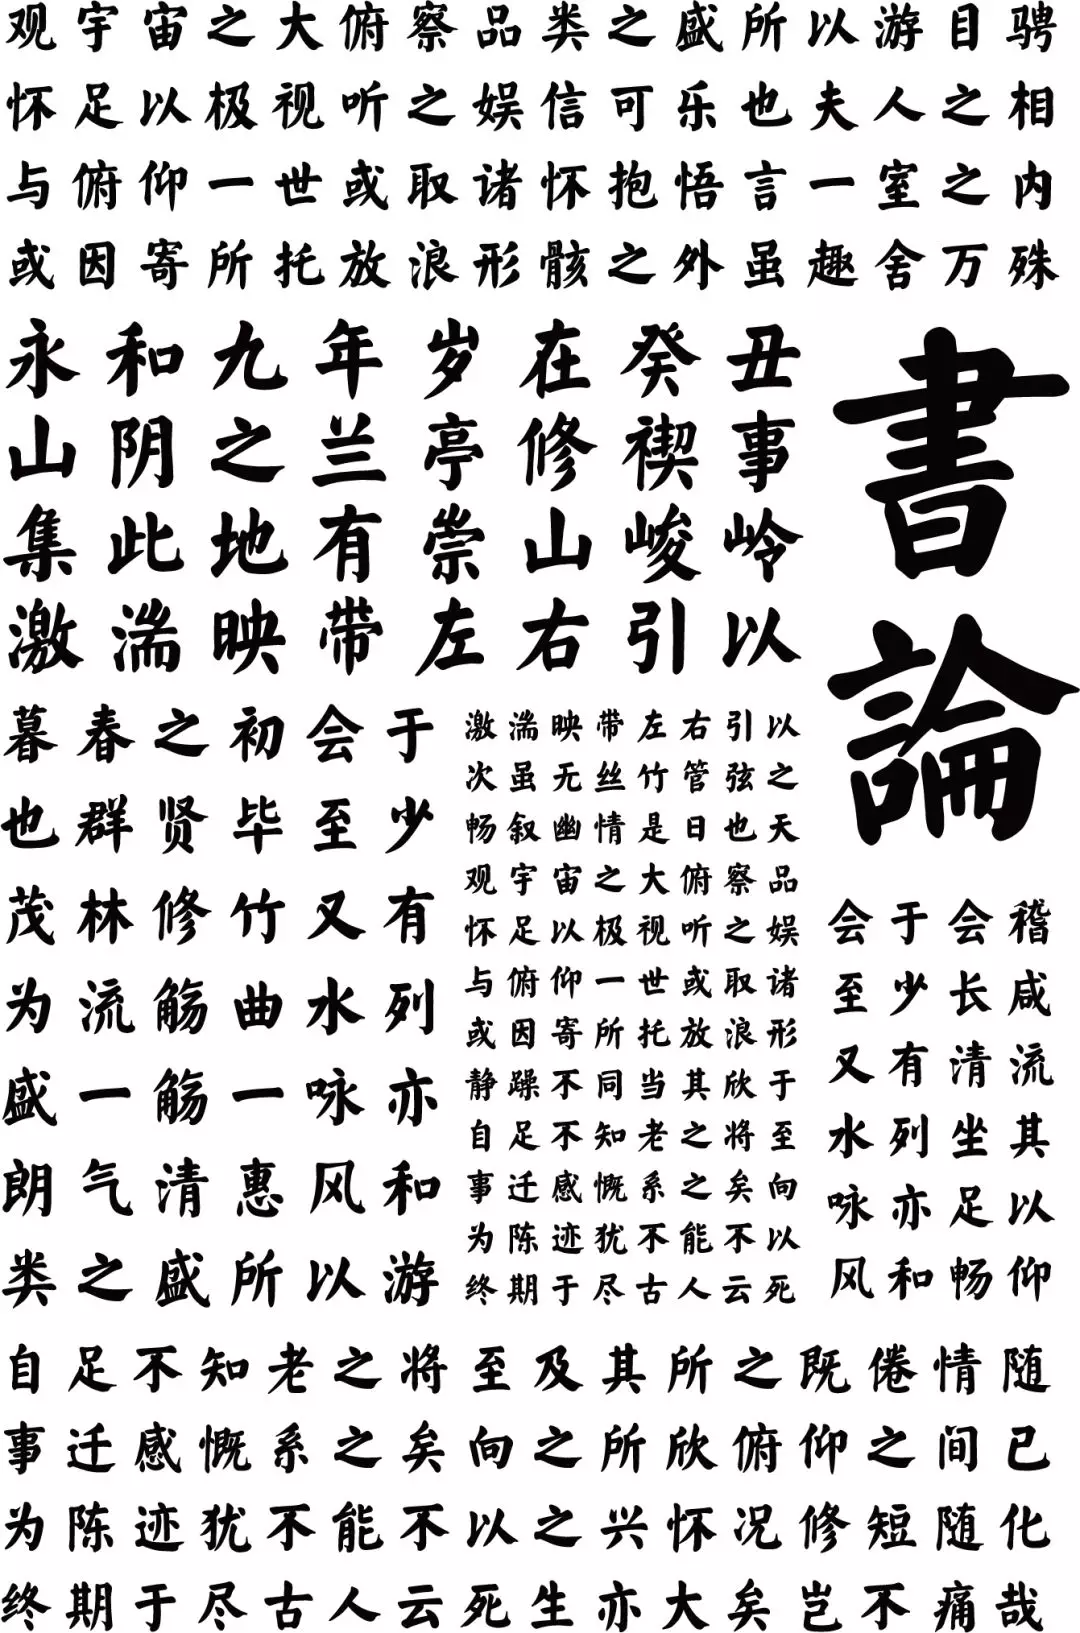 观宇宙之大俯察品类之盛所以游目骋
怀足以极视听之娱信可乐也夫人之相
与俯仰一世或取诸怀抱悟言一室之内
或因寄所托放浪形骸之外虽趣舍万殊
永和九年岁在癸丑
山阴之兰亭修禊事
集此地有崇山峻岭
激湍映带左右引以
書論
暮春之初会于
也群贤毕至少
茂林修竹又有
为流觞曲水列
盛一觞一咏亦
朗气清惠风和
类之盛所以游
激湍映带左右引以
次虽无丝竹管弦之
畅叙幽情是日也天
观宇宙之大俯察品
怀足以极视听之娱
与俯仰一世或取诸
或因寄所托放浪形
静躁不同当其欣于
自足不知老之将至
事迁感慨系之矣向
为陈迹犹不能不以
终期于尽古人云死
会于会稽
至少长咸
又有清流
水列坐其
咏亦足以
风和畅仰
自足不知老之将至及其所之既倦情随
事迁感慨系之矣向之所欣俯仰之间已
为陈迹犹不能不以之兴怀况修短随化
终期于尽古人云死生亦大矣岂不痛哉